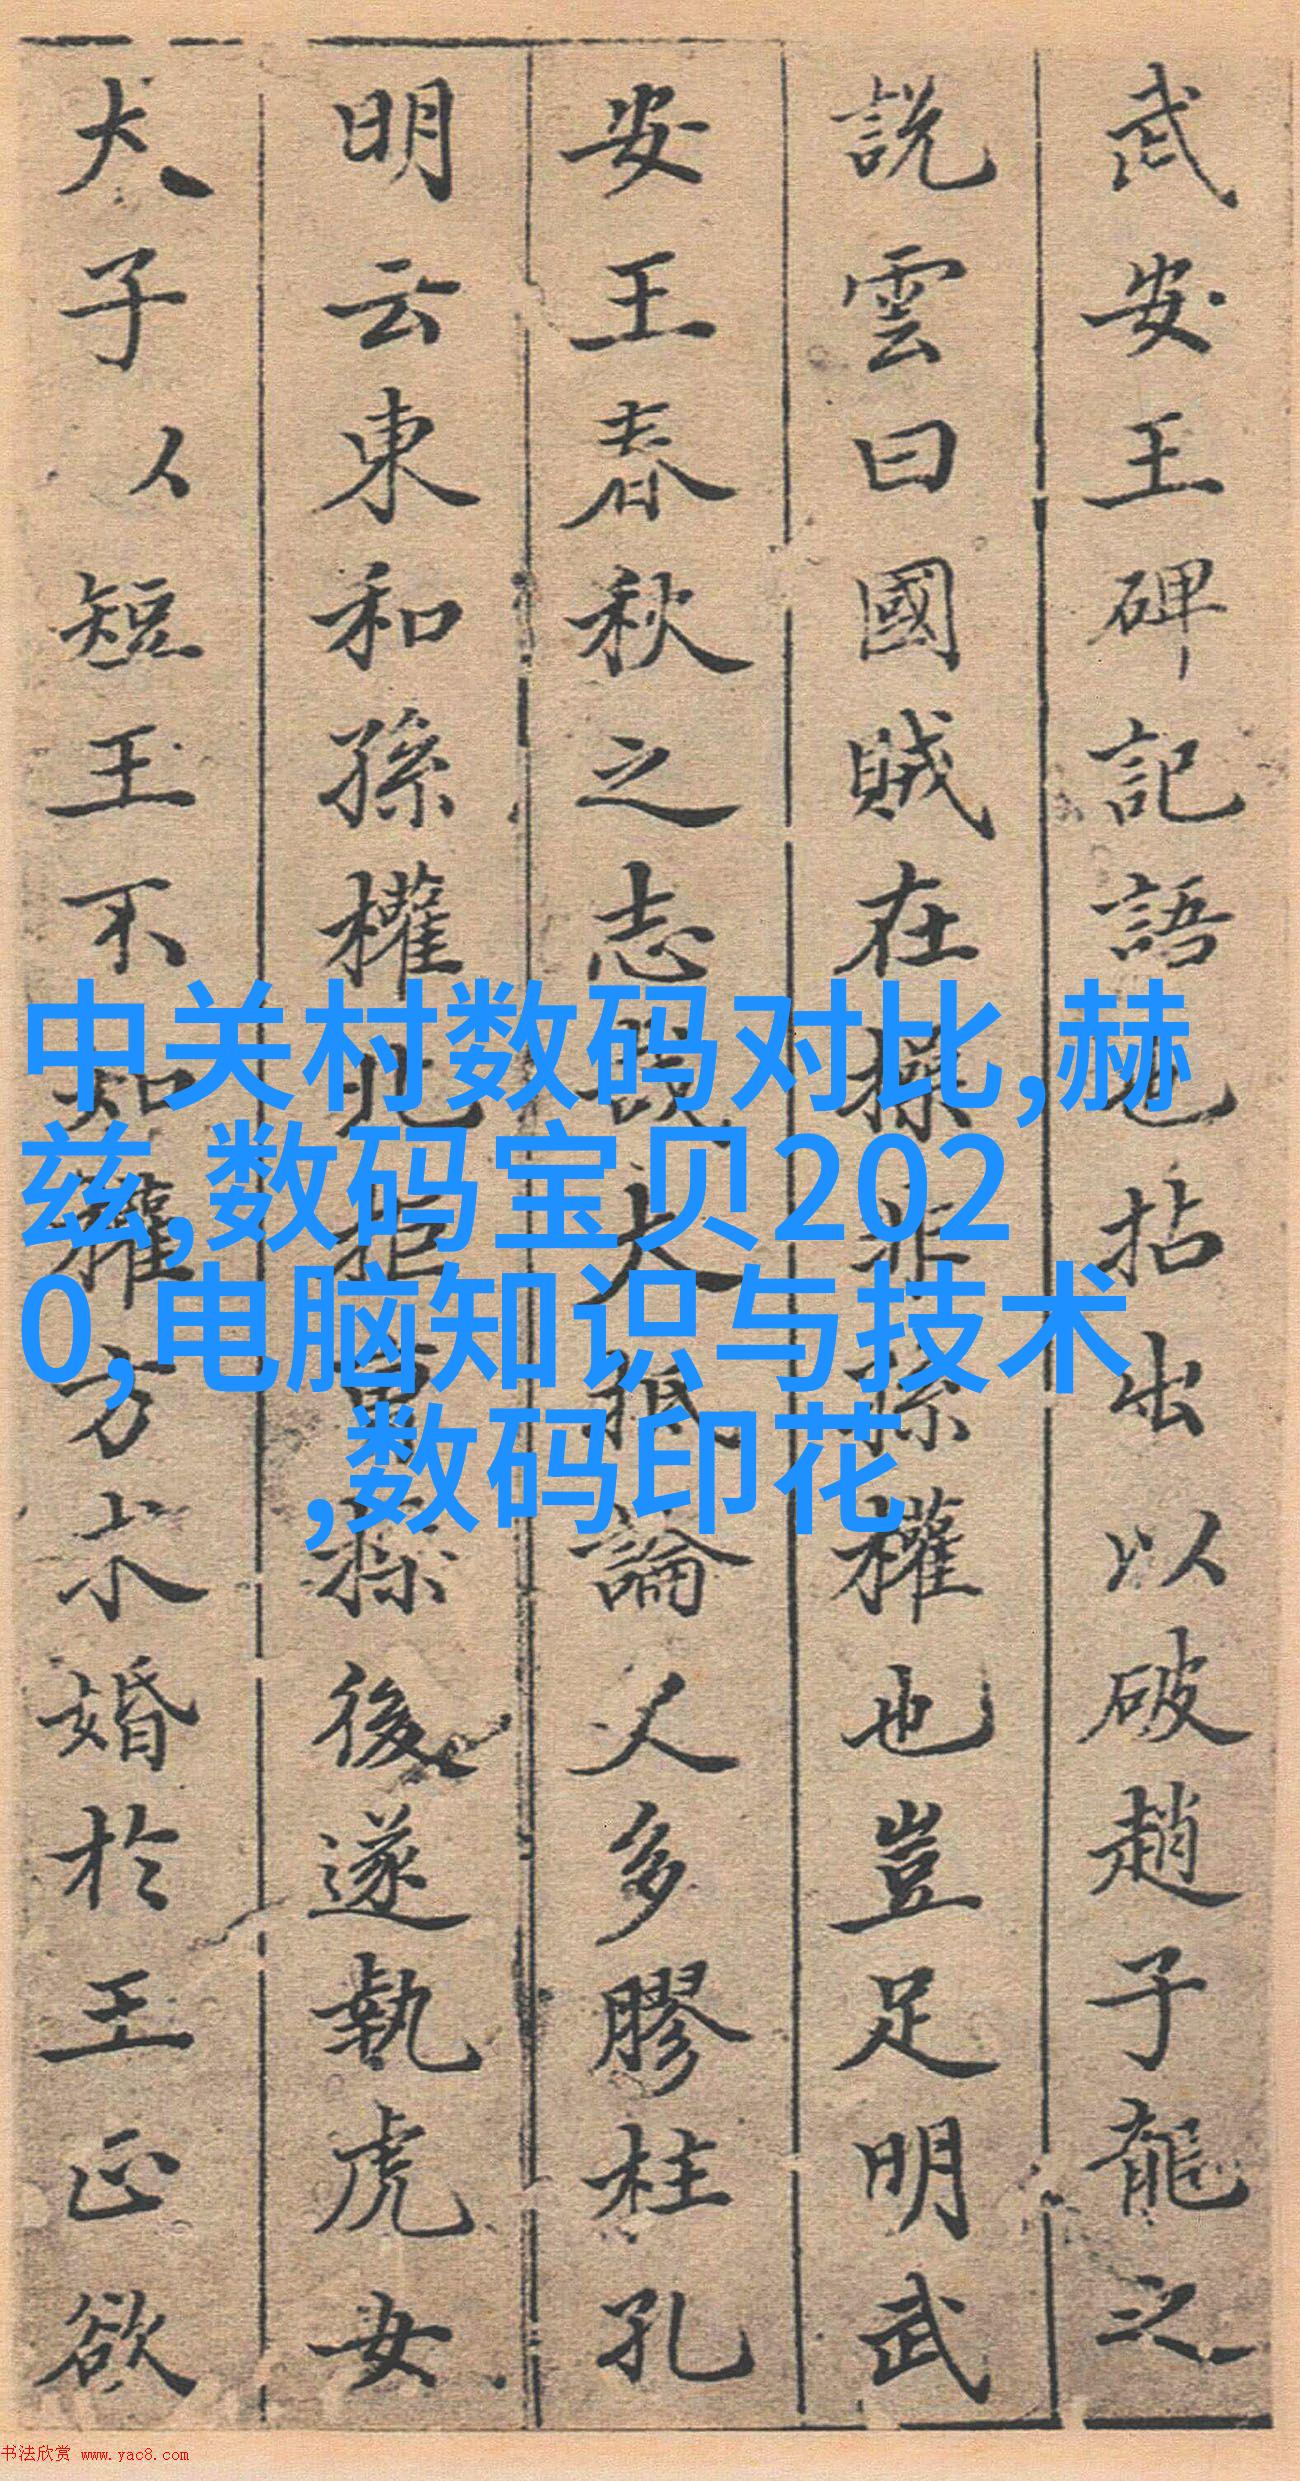 武安王碑記語也拈出以破趙子龍之
說雲曰國賊在操非孫權也豈足明武
安王春秋之志哉大抵論人多膠柱孔
明云東和孫權北拒曹操後遂執虎女
犬子以短王不知權方求婚於王正欲
中关村数码对比,赫
兹,数码宝贝202
0,电脑知识与技术
,数码印花
书法欣赏 www.yac8.com